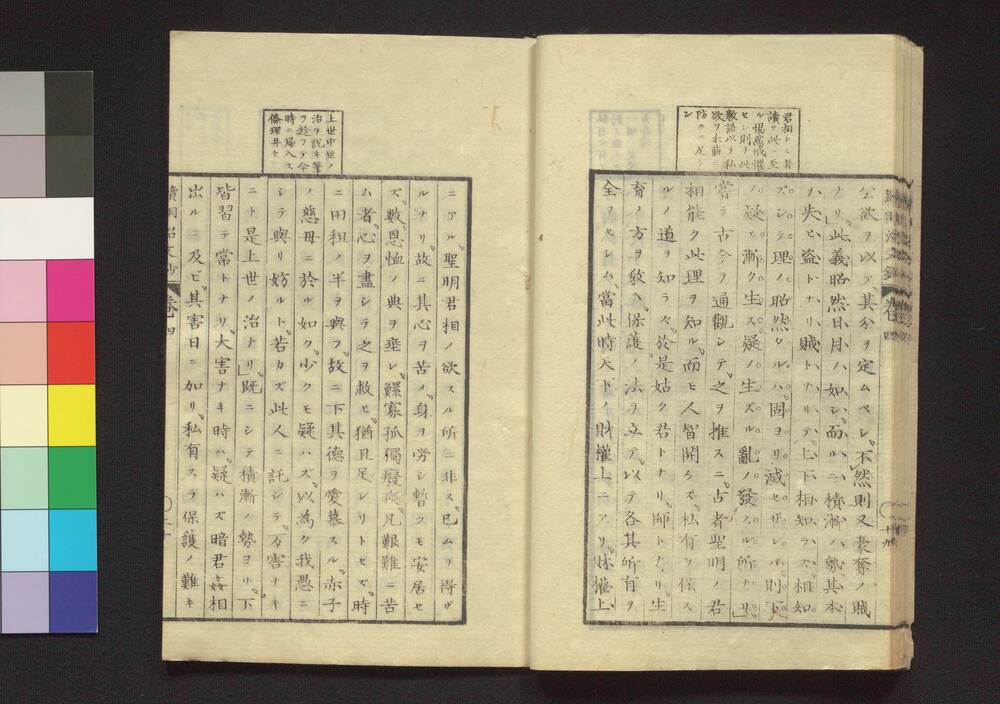 君相トル者
讀テ此ニ至
ル惕然戒懼
セン則ト此
數語以テ私
欲ヲ未萠ニ
防クニ足
ン
公欲ヲ以テ其分ヲ定ムベシ不然則又豪奪ノ賊
ナリ此義昭然日月ノ如シ而ルニ積漸ノ勢其本
ハ失ヒ盗トナリ賊トナリテ上下相知ラズ相知
ズシテ理ノ昭然タルハ固ヨリ滅セザレバ則下
ノ疑ヒ漸ク生ス疑ノ生ズル亂ノ發スル所ナリ
嘗ラ古今ヲ通觀シテ之ヲ推スニ古者聖明ノ君
相能ク此理ヲ知ル而モ人智開ケズ私有ヲ保ス
ルノ道ヲ知ラズ於是姑ク君トナリ師トナリ生
育ノ方ヲ敎ヘ保護ノ法ヲ立テ以テ各其所有ヲ
全フセシム當此時天下ノ財權上ニアリ財權上
十九
上世中世ノ
治ヲ説キ筆
ヲ於フテ今
時ニ歸入ス
條理井々
ニアル聖明君相ノ欲スル所ニ非ス已ムヲ得ザ
ルナリ故ニ其心ヲ苦メ身ヲ勞シ暫クモ安居セ
ズ數恩恤ノ典ヲ垂レ鰥寡孤獨癈疾凡艱難ニ苦
ム者心ヲ盡シラ之ヲ救ヒ猶且足レリトセズ時
ニ田租ノ半ヲ與フ故ニ下其德ヲ愛慕スル赤子
ノ慈母ニ於ル如ク少クモ疑ハズ以為ク我愚ニ
シテ與リ妨ルト若カズ此人ニ託シテ万害ナキ
ニト是上世ノ治ナリ既ニシテ積漸ノ勢ヨリ下
皆習テ常トナリ大害ナキ時ハ疑ハズ暗君姦相
出ルニ及ビ其害日ニ加リ私有スラ保護ノ難キ
卷四